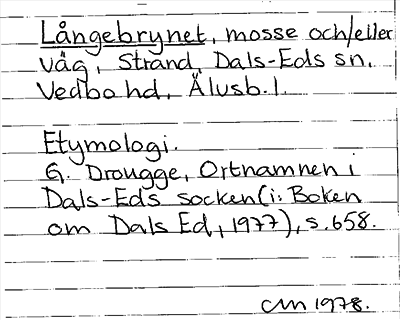 Långebrynet, mosse och/eller
våg, Strand, Dals-Eds sn.
Vedbo hd. Älvsb. l.
Etymologi.
G. Drougge, Ortnamnen i
Dals-Eds socken (i: Boken
om Dals Ed, 1977), s. 658.
CM 1978.